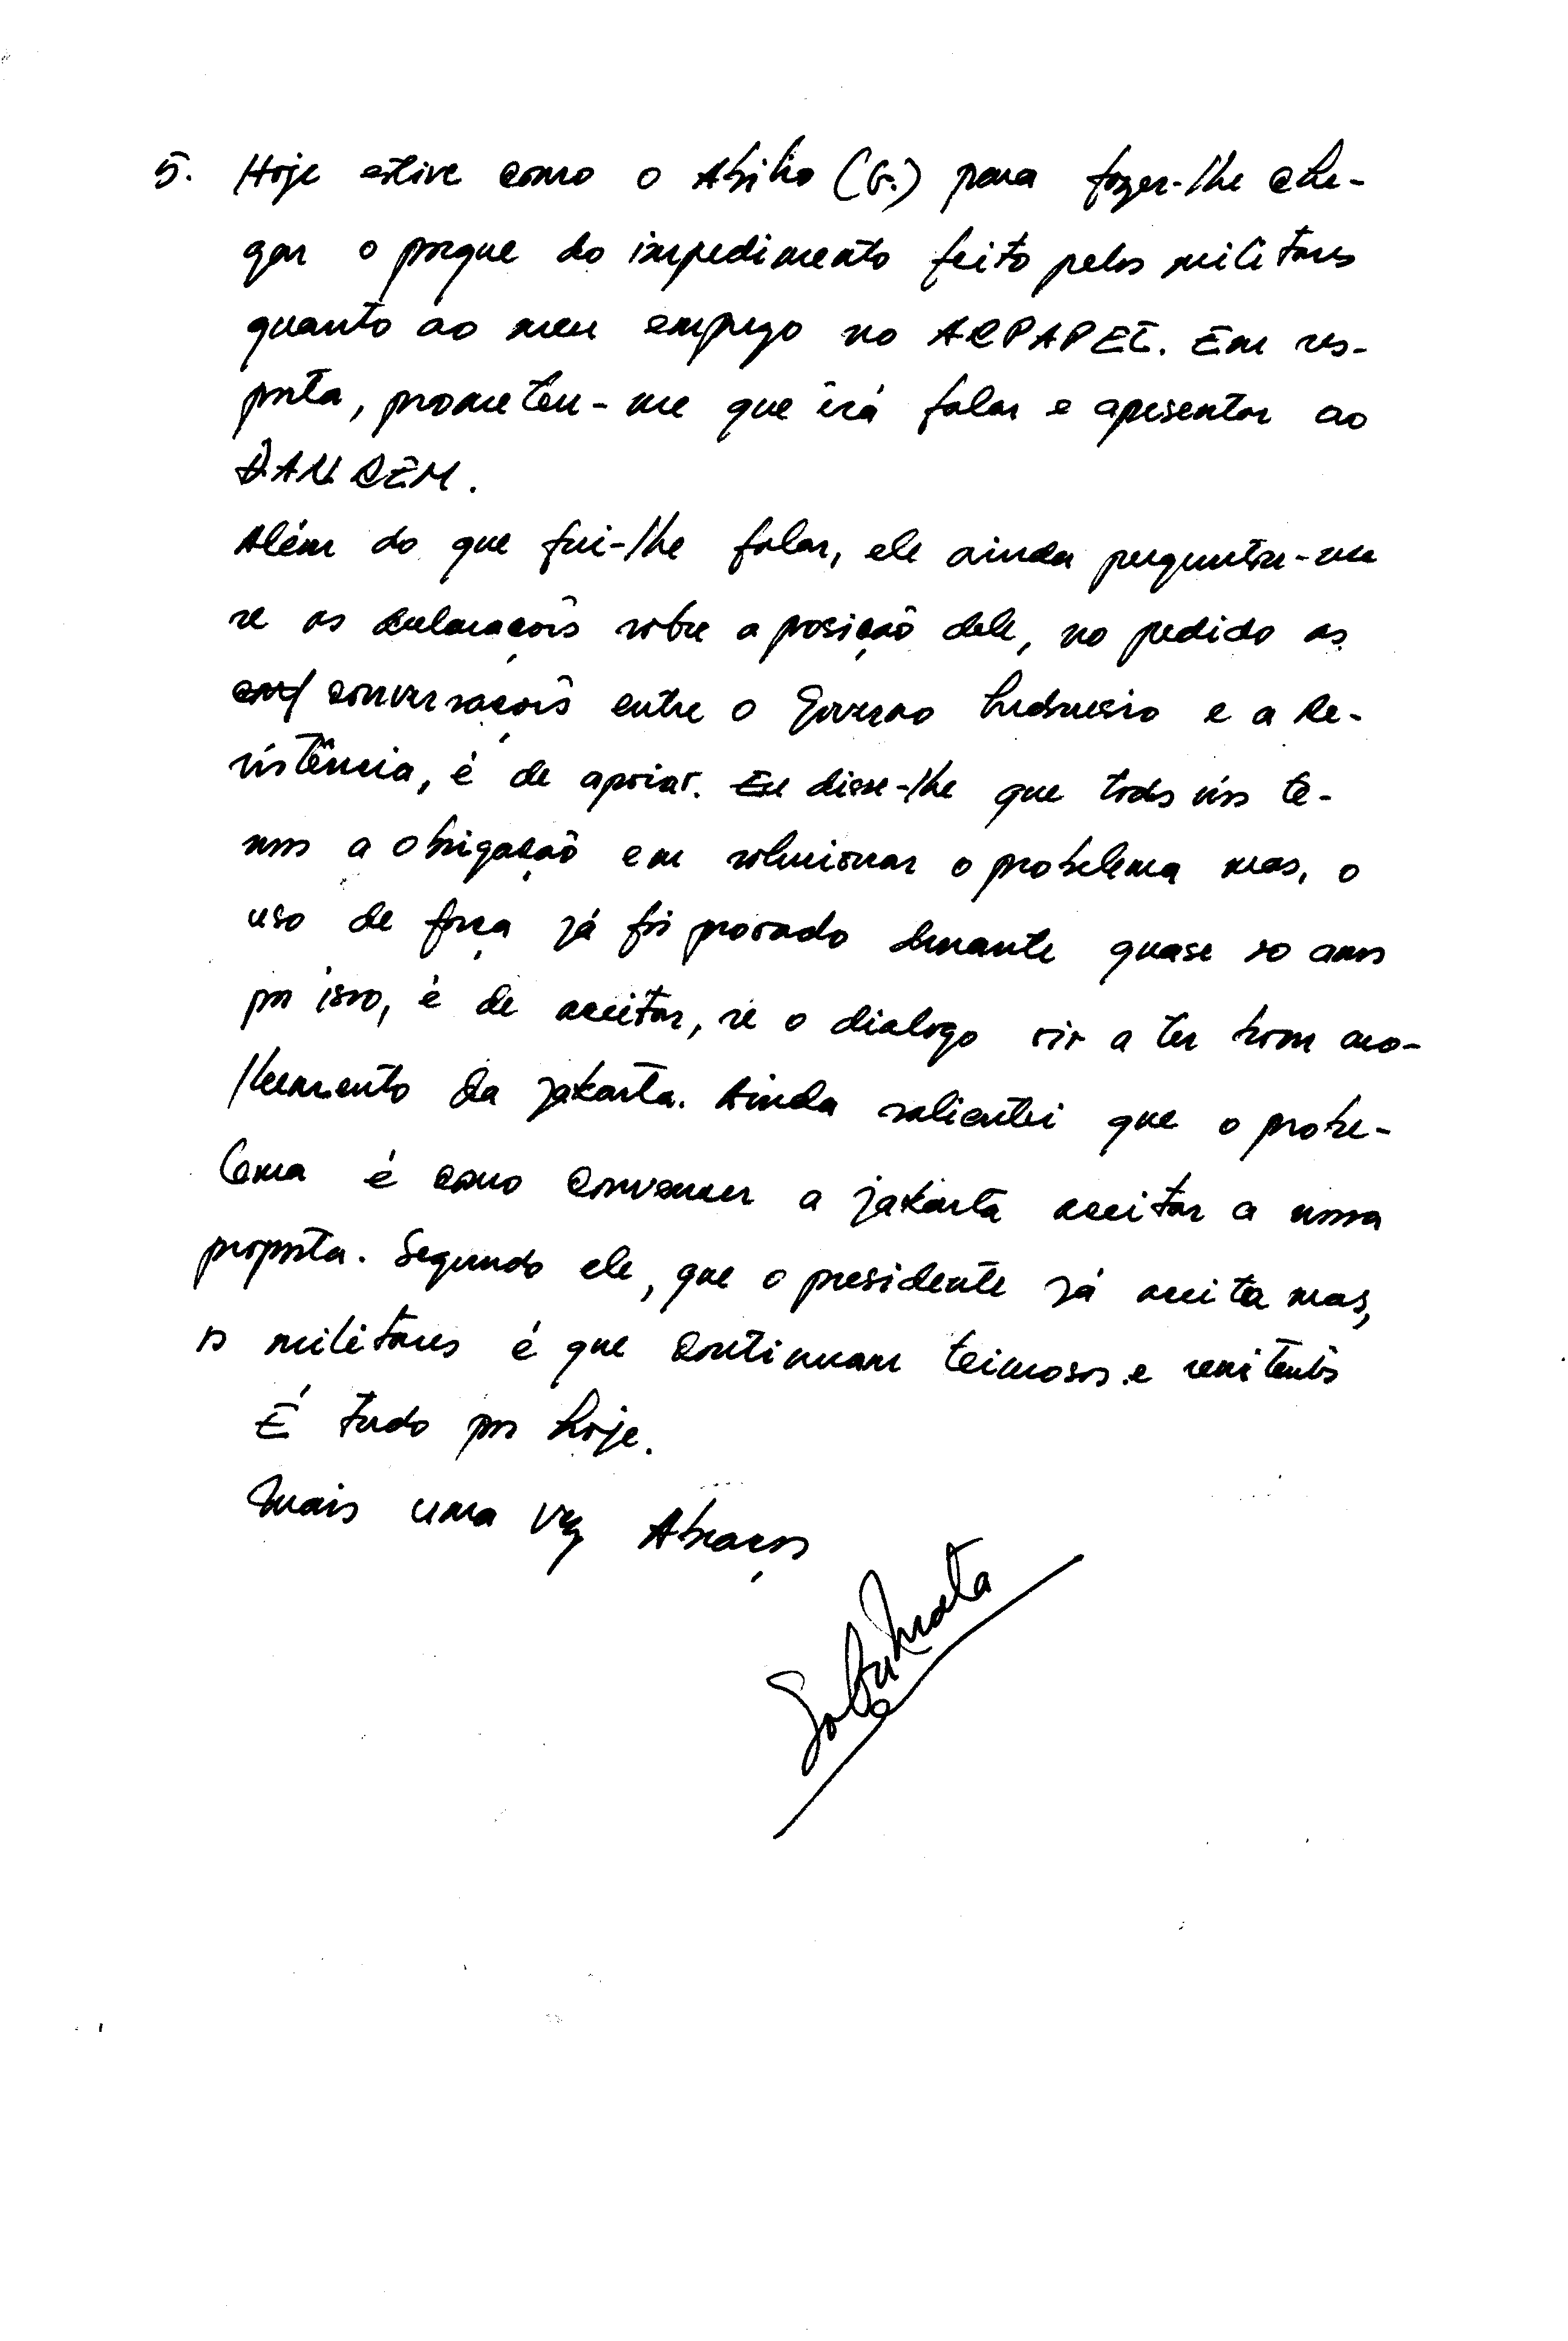 5. Hoje estive como o Abílio (G.) para fazer-lhe che-
gar o porque do impedimento feito pelos militares
quanto ao meu emprego no ARPAPET. Em res-
posta, prometeu-me que irá falar e apresentar ao
DANREM.
Além do que fui-lhe falar, ele ainda perguntou-me
se as declarações sobre a posição dele, no pedido as
conversações entre o Governo Indonesio e a Re-
sistência, é de apoiar. Eu disse-lhe que todos nós te-
mos a obrigação em solucionar o probelema mas, o
uso de força já foi provado durante quase 20 anos
por isso, é de aceitar, se o dialogo vir a ter bom aco-
lhemento da Jakarta. Ainda salientei que o probe-
lema é como convencer a jakarta aceitar a nossa
proposta. Segundo ele, que o presidente já aceita mas,
os militares é que continuam teimosos e renitentes
É tudo por hoje.
Mais uma vez Abraços